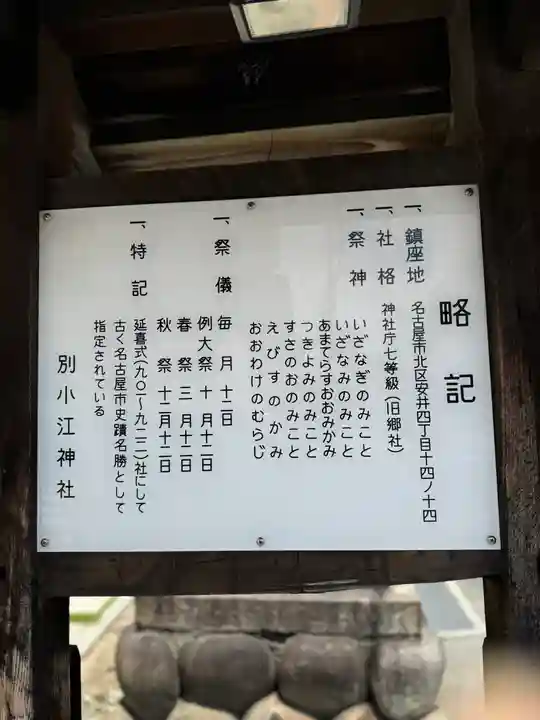 略記
一、鎮座地 名古屋市北区安井四丁目十四ノ十四
一、社格 神社庁七等級（旧郷社）
一、祭神 いざなぎのみこと
いざなみのみこと
あまてらすおおみかみ
つきよみのみこと
すさのおのみこと
えびすのかみ
おおわけのむらじ
一、祭儀 毎月十二日
例大祭 十月十二日
春祭 三月十二日
秋祭 十二月十二日
一、特記 延喜式（九〇一～九二二）社にして
古く名古屋市史蹟名勝として
指定されている
別小江神社